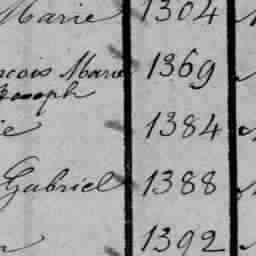 Marie 1304
ncois Marie 1369
Joseph
ie 1384
Gabriel 1388
1392